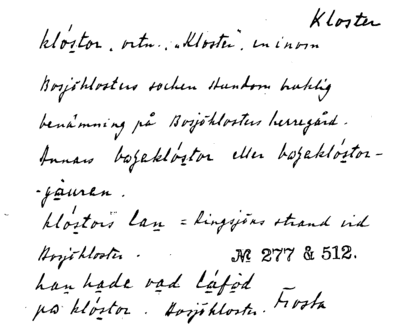 Kloster
klóstor, ortn., "Kloster", en inom
Bosjöklosters socken stundom bruklig
benämning på Bosjöklosters herregård.
Annars boseklóstor eller boseklóstor-
-gäuren.
klóstors lan = Ringsjöns strand vid
Bosjökloster.
№ 277 & 512.
han hade vad láföd
på klóstor. Bosjökloster. Frosta